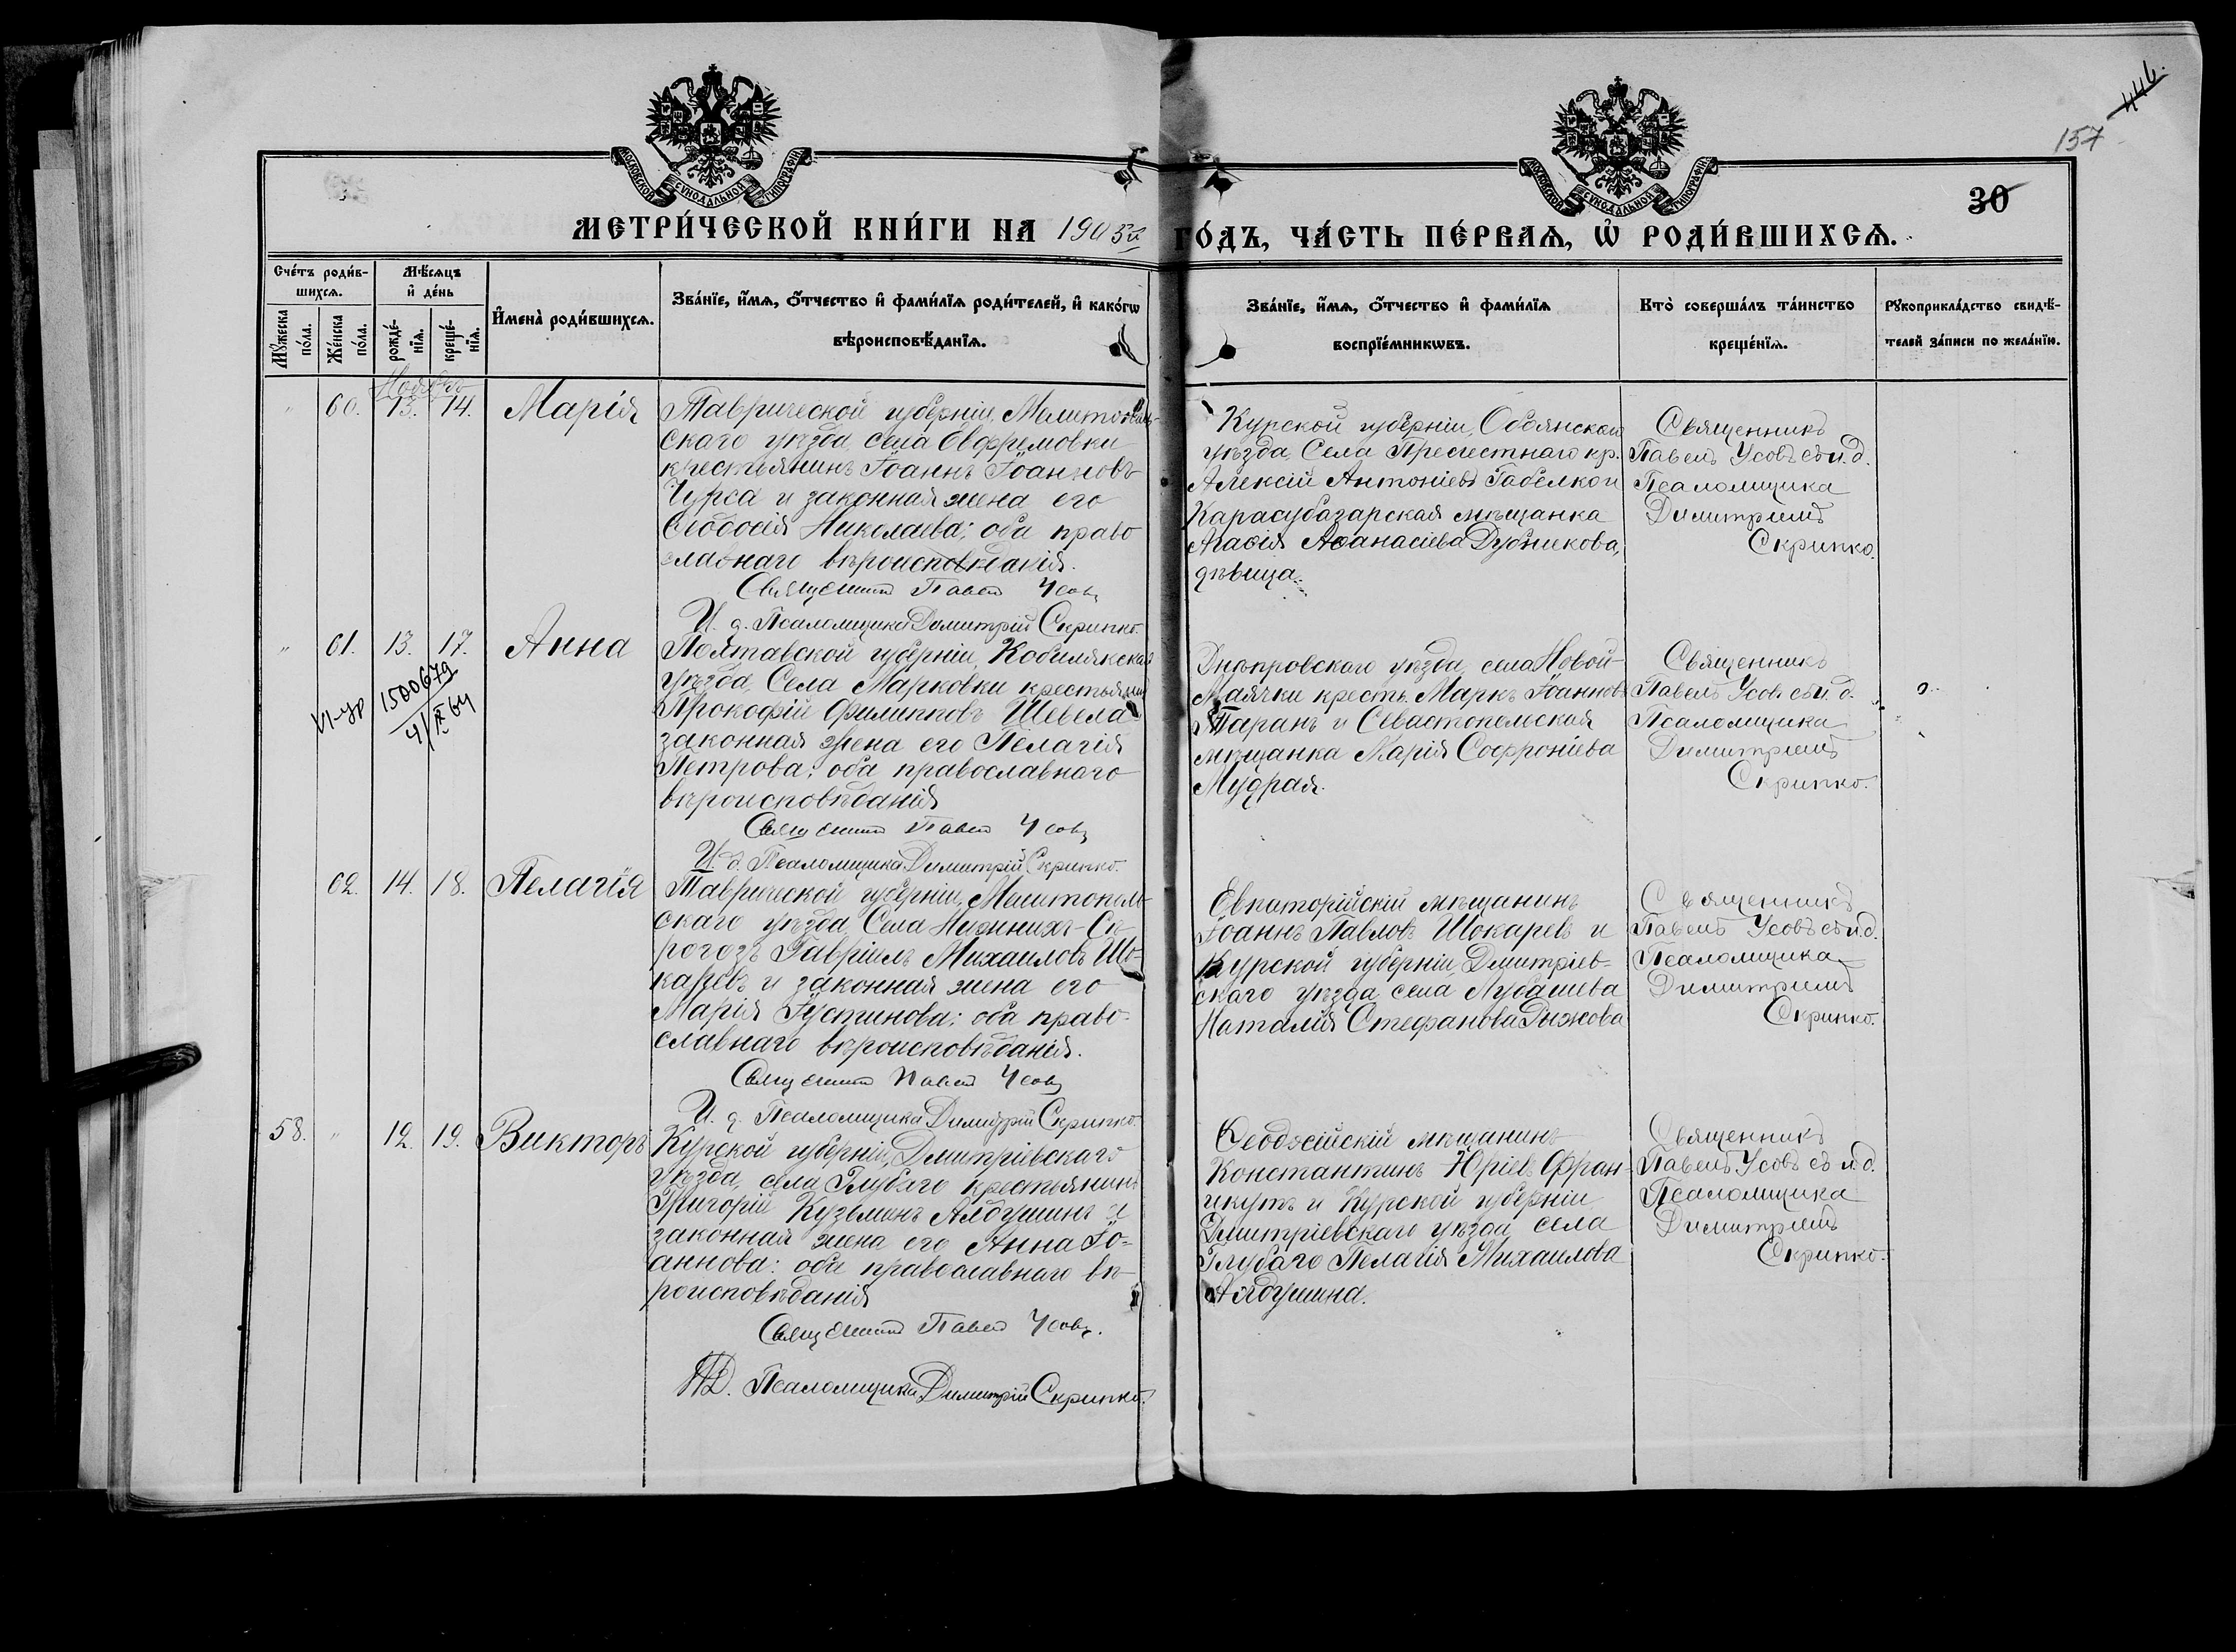 446.
157
30
МОСКОВСКОЙ СѴНОДАЛЬНОЙ ТИПОГРАФІИ
МОСКОВСКОЙ СѴНОДАЛЬНОЙ ТИПОГРАФІИ
МЕТРИ́ЧЕСКОЙ КНИ́ГИ НА 1903й ГО́ДЪ, ЧА́СТЬ ПЕ́РВАѦ, Ѡ҆ РОДИ́ВШИХСѦ.
Сче́тъ роди́в-
шихсѧ.
Мꙋ́жеска
по́ла.
Же́нска
по́ла.
Мѣ́сѧцъ
и҆ де́нь
рожде́-
нїѧ.
креще́-
нїѧ.
И҆мена̀ роди́вшихсѧ.
Зва́нїе, и҆́мѧ, ѻ҆́тчество и҆ фами́лїѧ роди́телей, и҆ како́гѡ
вѣроисповѣ́данїѧ.
Зва́нїе, и҆́мѧ, ѻ҆́тчество и҆ фами́лїѧ
воспрїе́мникѡвъ.
Кто̀ соверша́лъ та́инство
креще́нїѧ.
Рꙋкоприкла́дство свидѣ́-
телей за́писи по жела́нїю.
Ноябрь
60. 13. 14. Марія
Таврической губерніи, Мелитополь-
скаго уѣзда, села Евфремовки
крестьянинъ Іоаннъ Іоанновъ
Чурса и законная жена его
Ѳеодосія Николаева; оба право
славнаго вѣроисповѣданія.
Священникъ Павелъ Усовъ
И. д. Псаломщика Димитрій Скрипко.
Курской губерніи, Обоянскаго
уѣзда, Села Пречестнаго кр.
Алексій Антоніевъ Габелко и
Карасубазарская мѣщанка
Агаѳія Аѳанасіева Дубникова,
дѣвица.
Священникъ
Павелъ Усовъ съ и.д.
Псаломщика
Димитріемъ
Скрипко.
" 61. 13. 17. Анна
VI-ур 1500679
4/IX 64
Полтавской губерніи, Кобилякскаго
уѣзда, Села Марковки крестьянинъ
Прокофій Филипповъ Шевела и
законная жена его Пелагія
Петрова; оба православнаго
вѣроисповѣданія
Священникъ Павелъ Усовъ
И. д. Псаломщика Димитрій Скрипко.
Днѣпровскаго уѣзда, села Новой-
Маячки кресть. Маркъ Іоанновъ
Таранъ и Севастопольская
мѣщанка Марія Софроніева
Мудрая.
Священникъ
Павелъ Усовъ съ и. д.
Псаломщика
Димитріемъ
Скрипко.
62. 14. 18. Пелагія
Таврической губерніи, Мелитополь-
скаго уѣзда, Села Нижнихъ-Се-
рогозъ Гавріилъ Михаиловъ Шо-
каревъ и законная жена его
Марія Іустинова; оба право-
славнаго вѣроисповѣданія.
Священникъ Павелъ Усовъ
И. д. Псаломщика Димитрій Скрипко.
Евпаторійскій мѣщанинъ
Іоаннъ Павловъ Шокаревъ и
Курской губерніи, Дмитріев-
скаго уѣзда села Лубашева
Наталія Стефанова Рыжова
Священникъ
Павелъ Усовъ съ и.д.
Псаломщика
Димитріемъ
Скрипко.
58. " 12. 19. Викторъ
Курской губерніи, Дмитріевскаго
уѣзда, села Глубаго крестьянинъ
Григорій Кузьминъ Алдушинъ и
законная жена его Анна Іо-
аннова: оба православнаго вѣ-
роисповѣданія
Священникъ Павелъ Усовъ.
И.Д. Псаломщика Димитрій Скрипко.
Ѳеодосійскій мѣщанинъ
Константинъ Юріевъ Фран-
и Курской губерніи
Дмитріевскаго уѣзда села
Глубаго Пелагія Михаилова
Алдушина.
Священникъ
Павелъ Усовъ съ и.д.
Псаломщика
Димитріемъ
Скрипко.